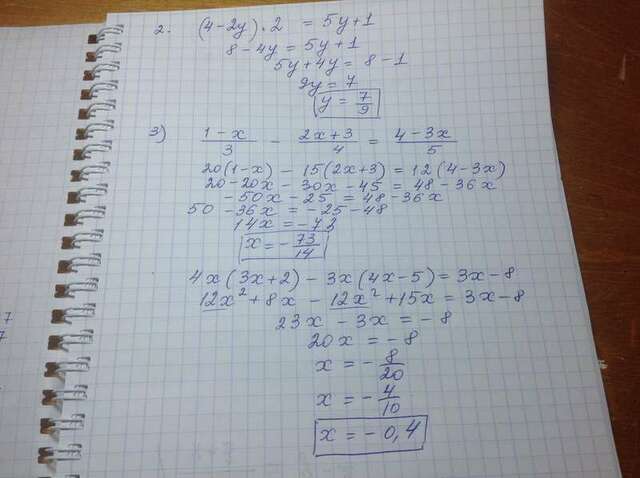 2. (4-2y)·2 = 5y+1
8-4y = 5y+1
5y+4y = 8-1
9y = 7
y = 7/9
3) (1-x)/3 - (2x+3)/4 = (4-3x)/5
20(1-x) - 15(2x+3) = 12(4-3x)
20-20x - 30x - 45 = 48 - 36x
-50x - 25 = 48 - 36x
50 - 36x = -25 - 48
14x = -73
x = -73/14
4x(3x+2) - 3x(4x-5) = 3x-8
12x² + 8x - 12x² + 15x = 3x-8
23x - 3x = -8
20x = -8
x = -8/20
x = -4/10
x = -0,4
7
7